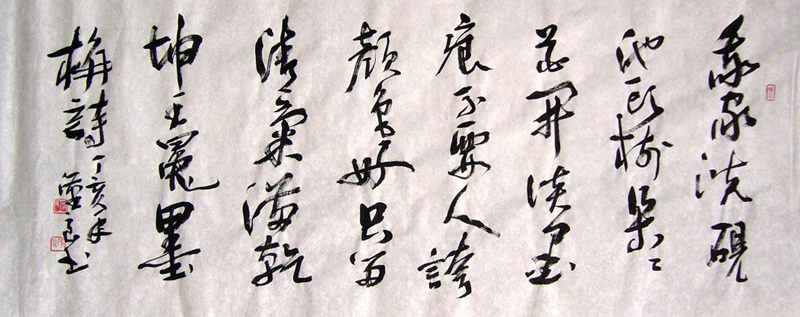 我家洗硯
池頭樹朵々
花開淡墨
痕不要人誇
顏色好只留
清氣滿乾
坤王冕墨
梅詩丁亥年
书